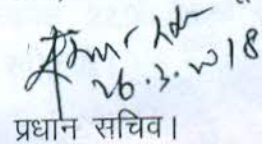 26.3.2018
प्रधान सचिव।